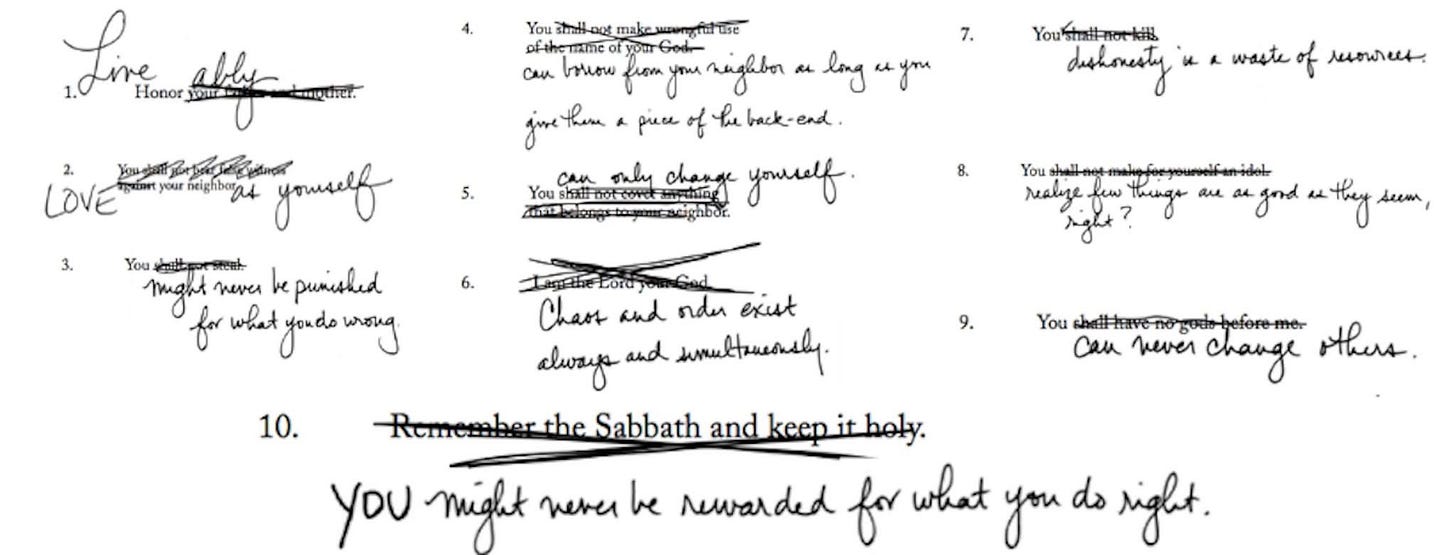 Live ably
1. Honor your father and mother.
2. You shall not bear false witness
LOVE against your neighbor as yourself
3. You shall not steal.
might never be punished
for what you do wrong.
4. You shall not make wrongful use
of the name of your God.
can borrow from your neighbor as long as you
give them a piece of the back-end.
can only change yourself.
5. You shall not covet anything
that belongs to your neighbor.
6. I am the Lord your God.
Chaos and order exist
always and simultaneously.
7. You shall not kill.
dishonesty is a waste of resources.
8. You shall not make for yourself an idol.
realize few things are as good as they seem,
right?
9. You shall have no gods before me.
can never change others.
10. Remember the Sabbath and keep it holy.
YOU might never be rewarded for what you do right.